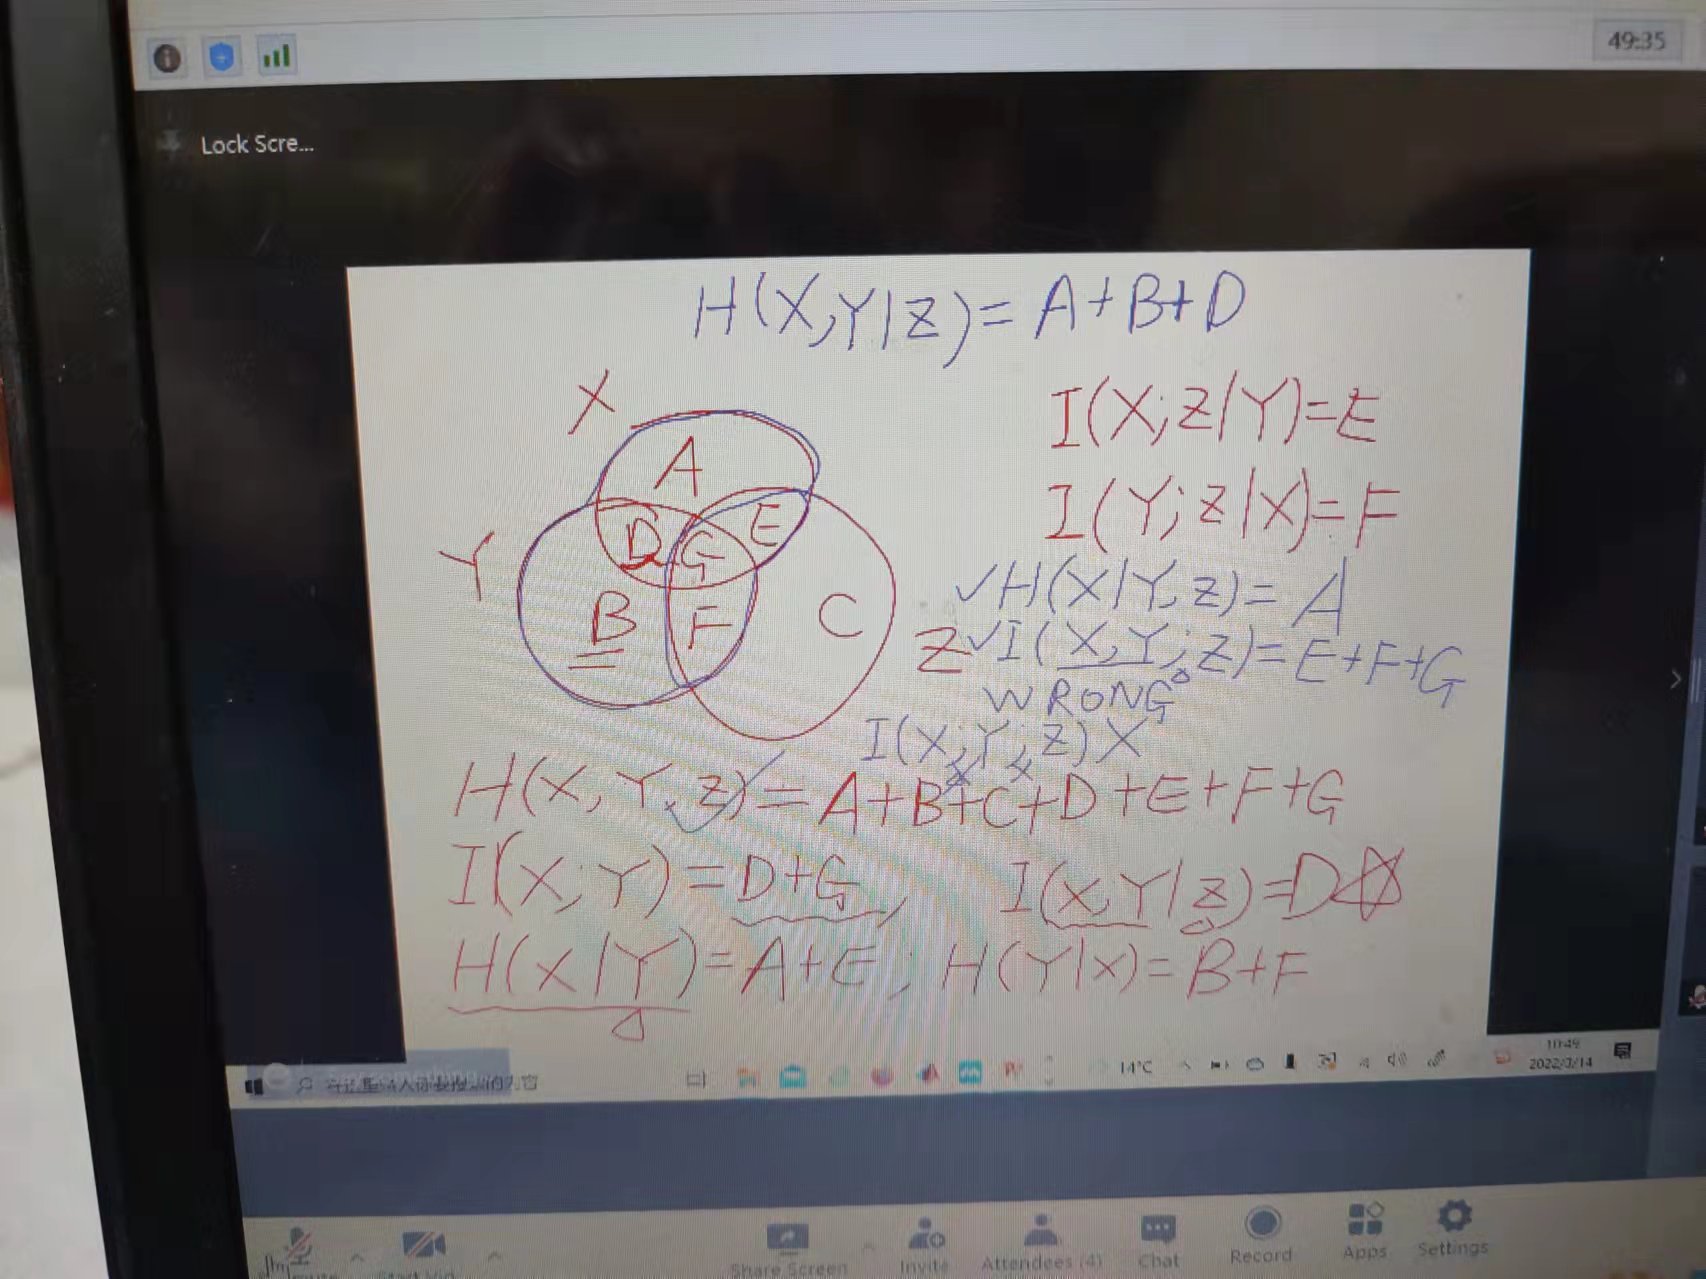 49:35
Lock Scre...
H(X,Y|Z)=A+B+D
X
I(X;Z|Y)=E
A
I(Y;Z|X)=F
D
G
E
Y
✓H(X|Y,Z)=A
B
F
C
Z
✓I(X,Y;Z)=E+F+G
WRONG
I(X;Y;Z)X
H(X,Y,Z)=A+B+C+D+E+F+G
I(X;Y)=D+G, I(X;Y|Z)=D
H(X|Y)=A+E; H(Y|X)=B+F
14°C
10:49
Share Screen
Invite
Attendees (4)
Chat
Record
Apps
Settings